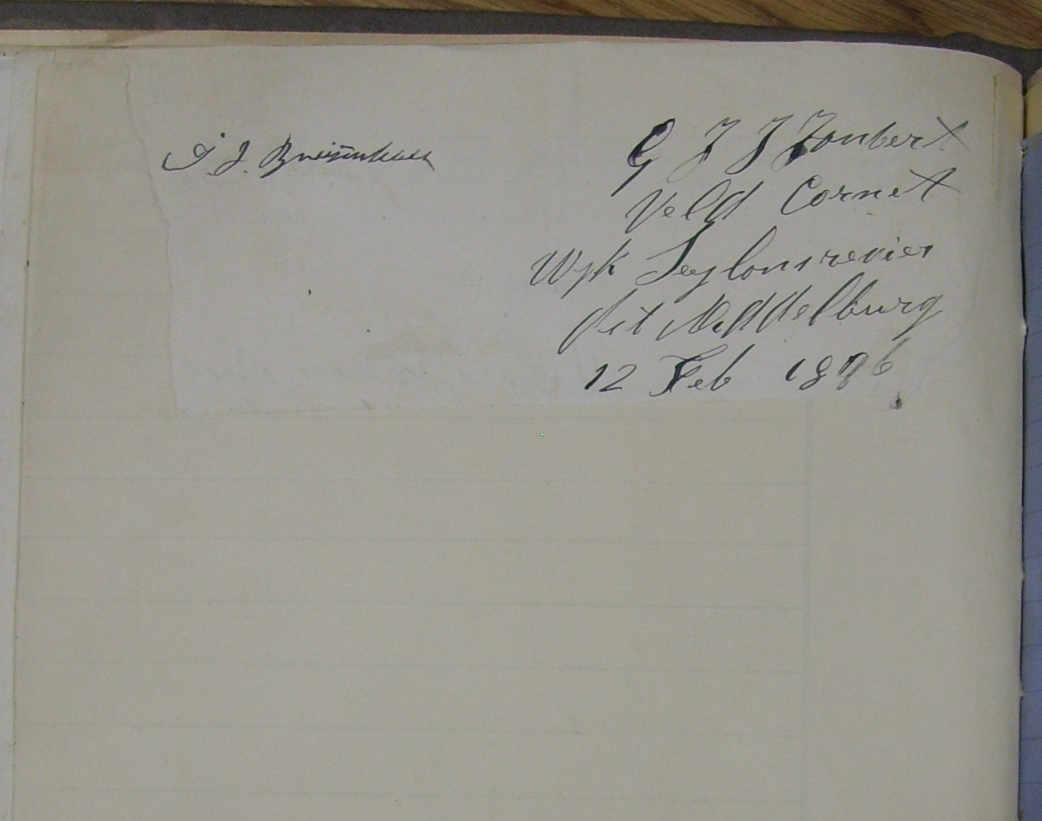 J. J. Bruizenhaas
G J J Joubert
Veld Cornet
Wyk Seylonsrevier
dist Middelburg
12 Feb 1896